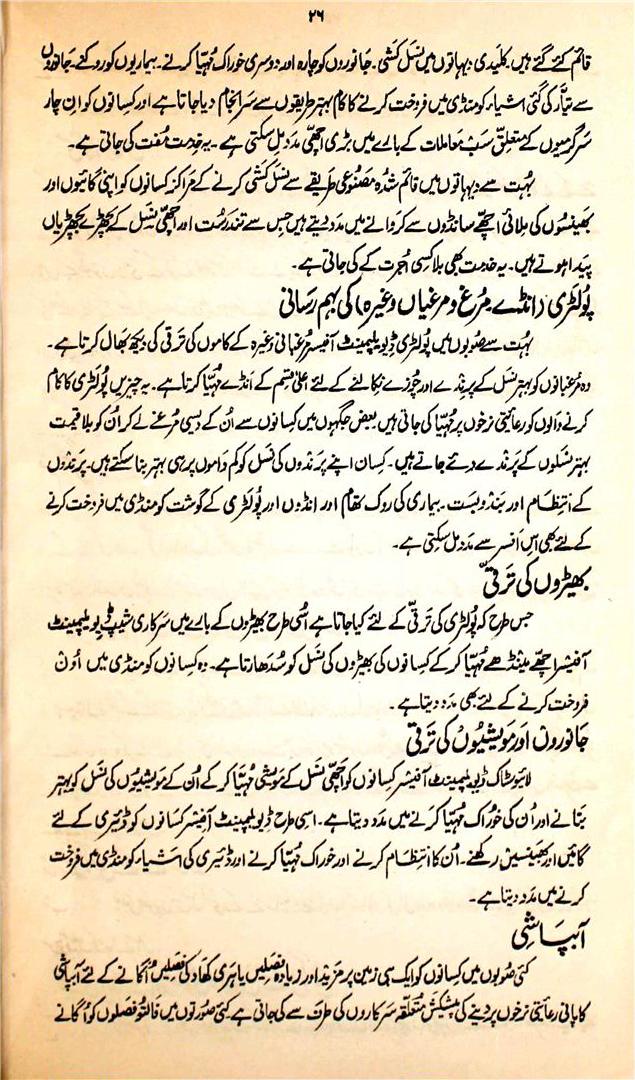 ۲۶
قائم کئے گئے ہیں۔ کلیدی دیہاتوں میں نسل کشی۔ جانوروں کو چارہ اور دوسری خوراک مُہیّا کرنے۔ بیماریوں کو روکنے۔ جانوروں
سے تیار کی گئی اشیاء کو منڈی میں فروخت کرنے کا کام بہتر طریقوں سے سرانجام دیا جاتا ہے اور کسانوں کو اِن چار
سرگرمیوں کے متعلق سب معاملات کے بارے میں بڑی اچھی مدد مِل سکتی ہے۔ یہ خِدمت مُفت کی جاتی ہے۔
بہُت سے دیہاتوں میں قائم شُدہ مصنُوعی طریقے سے نسل کشی کرنے کے مراکز کسانوں کو اپنی گائیوں اور
بھینسوں کی مِلائی اچھّے سانڈوں سے کروانے میں مدد دیتے ہیں جس سے تندرُست اور اچھّی نسل کے بچھڑے بچھڑیاں
پیدا ہوتے ہیں۔ یہ خدمت بھی بلا کسی اُجرت کے کی جاتی ہے۔
پولٹری (انڈے، مُرغ و مرغیاں وغیرہ) کی بہم رسانی
بہُت سے صُوبوں میں پولٹری ڈیویلپمینٹ آفیسر مُرغبانی وغیرہ کے کاموں کی ترقی کی دیکھ بھال کرتا ہے۔
وہ مُرغبانوں کو بہتر نسل کے پرندے اور چُوزے نکالنے کے لئے اعلیٰ قِسم کے انڈے مُہیّا کرتا ہے۔ یہ چیزیں پُولٹری کا کام
کرنے والوں کو رعائیتی نرخوں پر مُہیّا کی جاتی ہیں بعض جگہوں میں کسانوں سے اُن کے دیسی مُرغے لے کر اُن کو بِلا قیمت
بہتر نسلوں کے پرندے دئے جاتے ہیں۔ کِسان اپنے پرندوں کی نسل کو کم داموں پر ہی بہتر بنا سکتے ہیں۔ پرندوں
کے اِنتظام اور بندوبست۔ بیماری کی روک تھام اور انڈوں اور پُولٹری کے گوشت کو منڈی میں فروخت کرنے
کے لئے بھی اس افسر سے مدد مل سکتی ہے۔
بھیڑوں کی ترقی
جس طرح کہ پُولٹری کی ترقی کے لئے کیا جاتا ہے اُسی طرح بھیڑوں کے بارے میں سرکاری شیپ ڈیویلپمینٹ
آفیسر اچھّے مینڈھے مُہیّا کر کے کسانوں کی بھیڑوں کی نسل کو سُدھارتا ہے۔ وہ کسانوں کو منڈی میں اُون
فروخت کرنے کے لئے بھی مدد دیتا ہے۔
جانوروں اور مویشیوں کی ترقی
لائیوسٹاک ڈیویلپمینٹ آفیسر کسانوں کو اچھّی نسل کے مویشی مُہیّا کر کے اُن کے مویشیوں کی نسل کو بہتر
بنانے اور اُن کی خوراک مُہیّا کرنے میں مدد دیتا ہے۔ اسی طرح ڈیویلپمینٹ آفیسر کسانوں کو ڈئیری کے لئے
گائیں اور بھینسیں رکھنے۔ اُن کا انتظام کرنے اور خوراک مُہیّا کرنے اور ڈئیری کی اشیاء کو منڈی میں فروخت
کرنے میں مدد دیتا ہے۔
آبپاشی
کئی صُوبوں میں کسانوں کو ایک ہی زمین پر مزید اور زیادہ فصلیں یا ہری کھاد کی فصلیں اُگانے کے لئے آبپاشی
کا پانی رعائیتی نرخوں پر دینے کی پیشکش متعلقہ سرکاروں کی طرف سے کی جاتی ہے کئی صُورتوں میں فالتو فصلوں کو اُگانے